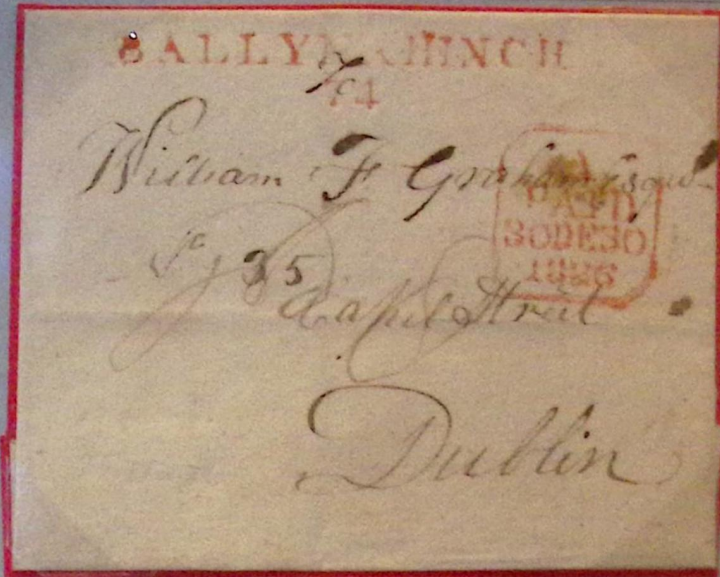 BALLYNAHINCH
74
William F Graham Esqr
PAID
30DE30
1826
No 35
Capel Street
Dublin